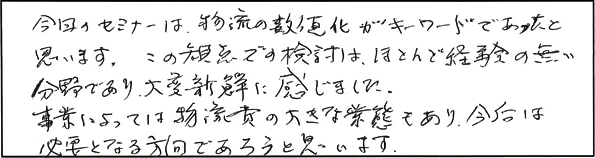 今回のセミナーは、物流の数値化がキーワードであったと
思います。この観点での検討は、ほとんど経験の無い
分野であり、大変新鮮に感じました。
事業によっては物流費の大きな業態もあり、今后は
必要となる方向であろうと思います。